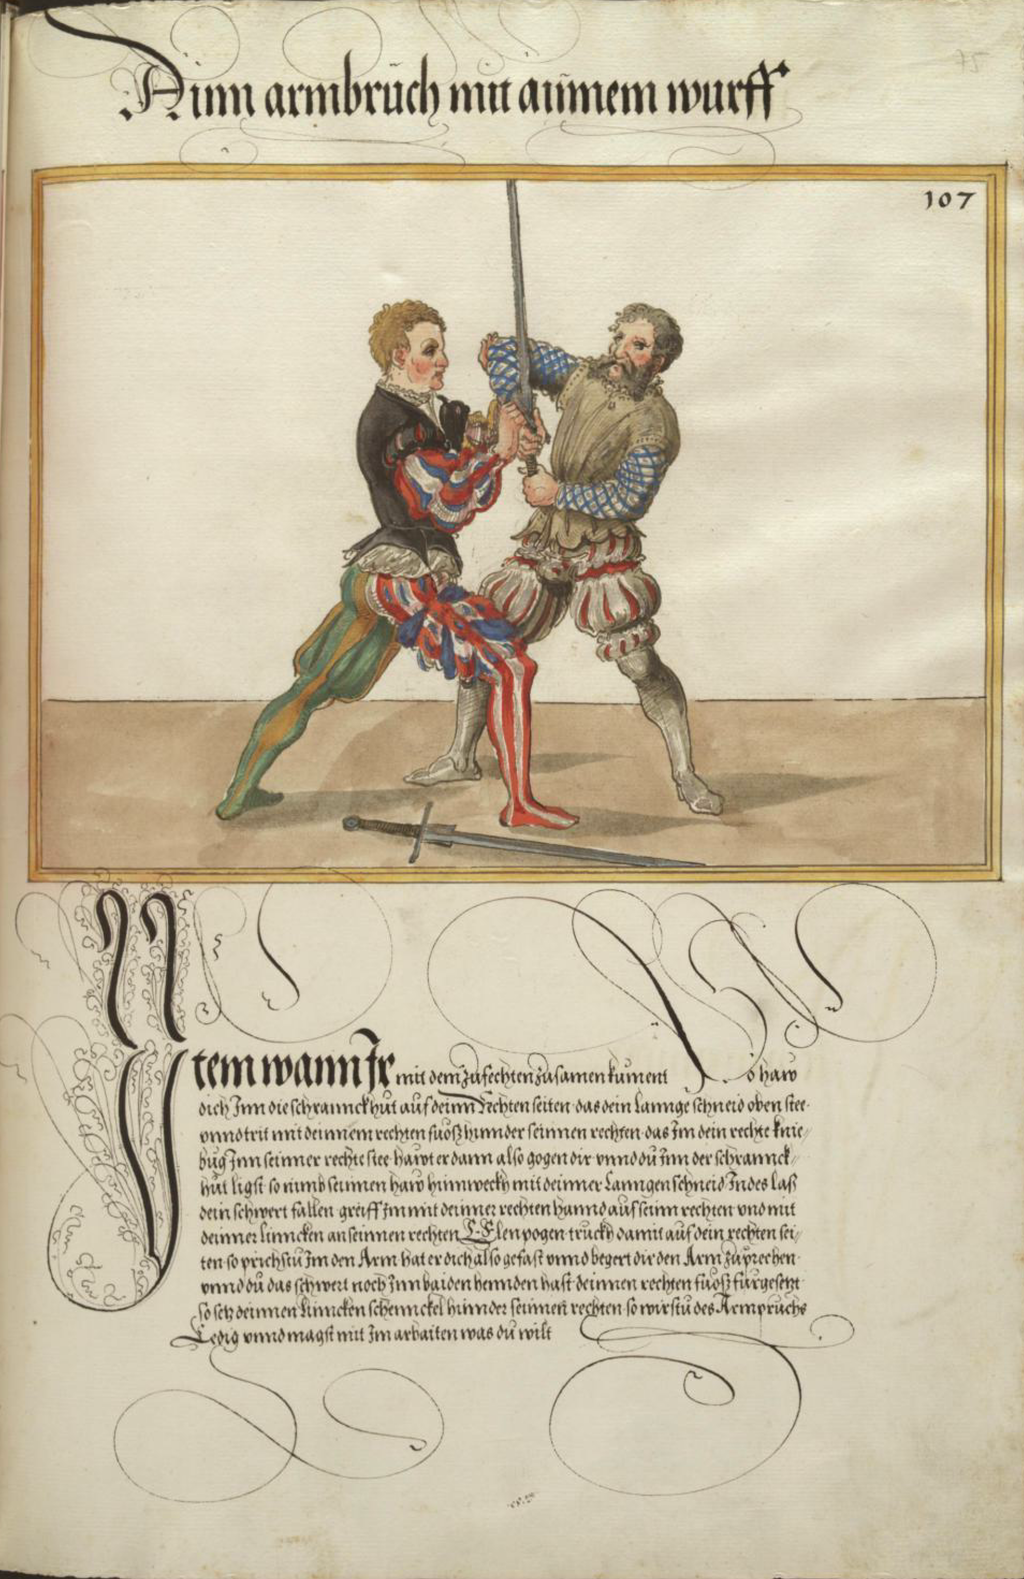 Ainn armbruch mit ainnem wurff
75
107
Item wann Ir mit dem zufechten zusamen kument so haw
dich Inn die schrannckhut auf deinn Rechten seiten das dein Lannge schneid oben stee
vnnd trit mit deinnem rechten fuosz hinnder seinnen rechten das Im dein rechte knie
bug Inn seinner rechte stee hawt er dann also gogen dir vnnd du Inn der schranck
hut ligst so nimb seinnen haw hinnweckh mit deinner Lanngen schneid Indes Lasz
dein schwert fallen greiff Im mit deinner rechten hannd auf seinn rechten vnd mit
deinner linncken an seinnen rechten Elenpogen truckh damit auf dein rechten sei
ten so prichstu Im den Arm hat er dich also gefast vnnd begert dir den Arm zuprechen
vnnd du das schwert noch Inn baiden hennden hast deinnen rechten fuosz fürgesetzt
so setz deinnen Linncken schennckel hinnder seinnen rechten so wirstu des Armpruchs
Ledig vnnd magst mit Im arbaiten was du wilt